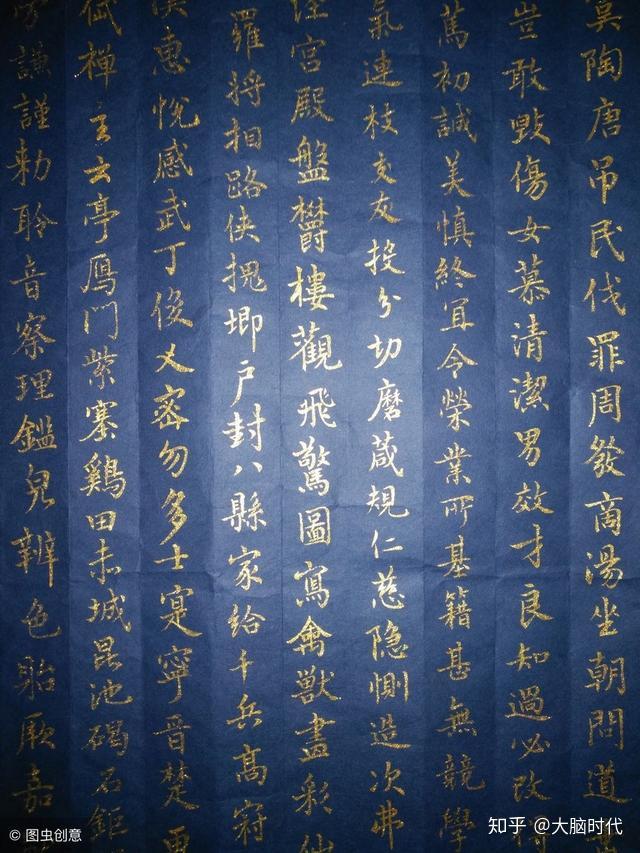 陶唐吊民伐罪周發商湯坐朝問道
豈敢毀傷女慕清潔男效才良知過必改得
篤初誠美慎終宜令榮業所基籍甚無競學
氣連枝交友投分切磨箴規仁慈隐惻造次弗
宮殿盤欝樓觀飛驚圖寫禽獸畫彩仙
羅將相路侠槐卿户封八縣家給千兵高冠
漢惠悅感武丁俊乂密勿多士寔寧晉楚更
岱禪主云亭鴈門紫塞鷄田赤城昆池碣石鉅
謙謹勅聆音察理鑑皃辨色貽厥嘉
© 图虫创意
知乎 @大脑时代